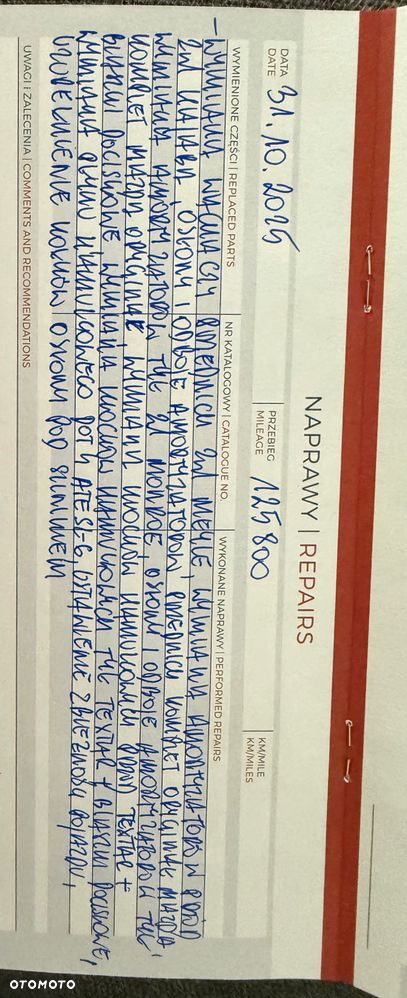 NAPRAWY | REPAIRS
DATA
DATE
31.10.2025
PRZEBIEG
MILEAGE
125800
KM/MILE
KM/MILES
WYMIENIONE CZĘŚCI | REPLACED PARTS
NR KATALOGOWY | CATALOGUE NO.
WYKONANE NAPRAWY | PERFORMED REPAIRS
- WYMIANA WAHACZY PRZEDNICH 2X MEYLE, WYMIANA AMORTYZATORÓW PRZÓD
2X KAYABA, OSŁONY I ODBOJE AMORTYZATORÓW PRZEDNICH KOMPLET ORYGINAŁ MAZDA,
WYMIANA AMORTYZATORÓW TYŁ 2X MONROE, OSŁONY I ODBOJE AMORTYZATORÓW TYŁ
KOMPLET MAZDA ORYGINAŁ, WYMIANA KLOCKÓW HAMULCOWYCH PRZÓD TEXTAR +
BLASZKI DOCISKOWE, WYMIANA KLOCKÓW HAMULCOWYCH TYŁ TEXTAR + BLASZKI DOCISKOWE,
WYMIANA PŁYNU HAMULCOWEGO DOT4 ATE SL-6, USTAWIENIE ZBIEŻNOŚCI POJAZDU,
UZUPEŁNIENIE OSŁONY POD SILNIKIEM
UWAGI I ZALECENIA | COMMENTS AND RECOMMENDATIONS
OTOMOTO